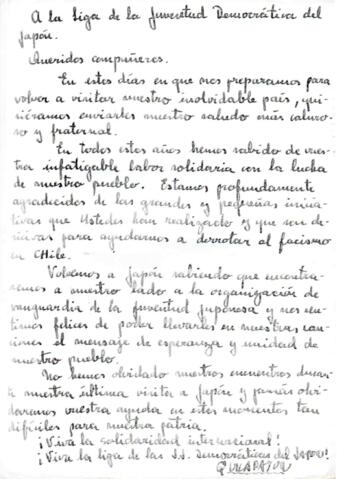 A la Liga de la Juventud Democrática del
Japón.
Queridos compañeros.
En estos días en que nos preparamos para
volver a visitar vuestro inolvidable país, qui-
siéramos enviarles nuestro saludo más caluro-
so y fraternal.
En todos estos años hemos sabido de vues-
tra infatigable labor solidaria con la lucha
de nuestro pueblo. Estamos profundamente
agradecidos de las grandes y pequeñas inicia-
tivas que Ustedes han realizado y que son de-
cisivas para ayudarnos a derrotar al facismo
en Chile.
Volvemos a Japón sabiendo que encontra-
remos a nuestro lado a la organización de
vanguardia de la juventud japonesa y nos sen-
timos felices de poder llevarles en nuestras can-
ciones el mensaje de esperanza y unidad de
nuestro pueblo.
No hemos olvidado nuestros encuentros duran-
te nuestra última visita a Japón y jamás olvi-
daremos vuestra ayuda en estos momentos tan
difíciles para nuestra patria.
¡Viva la solidaridad internacional!
¡Viva la Liga de las J.J. Democráticas del Japón!
QUILAPAYUN